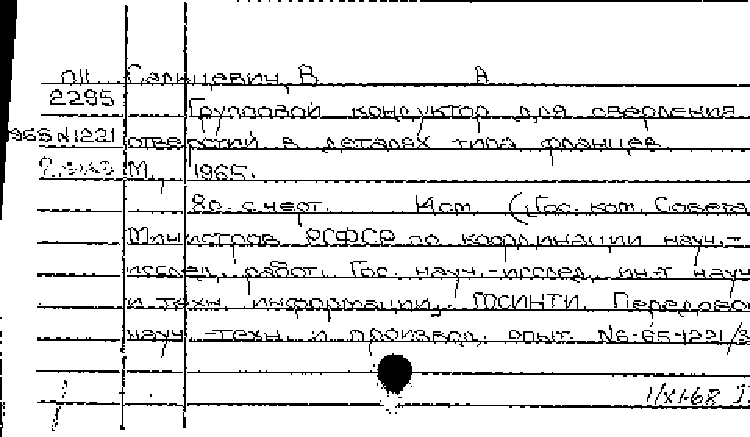 П11 Сальцевич, В А
2295 Групповой кондуктор для сверления
965 N1221 отверстий в деталях типа фланцев.
М., 1965.
8с. с черт. 14см. (Гос. ком. Совета
Министров РСФСР по координации науч.-
исслед. работ. Гос. науч.-исслед. ин-т науч
и техн. информации. ГОСИНТИ. Передовой
науч.-техн. и производ. опыт. №6-65-1221/3
1/XI-68